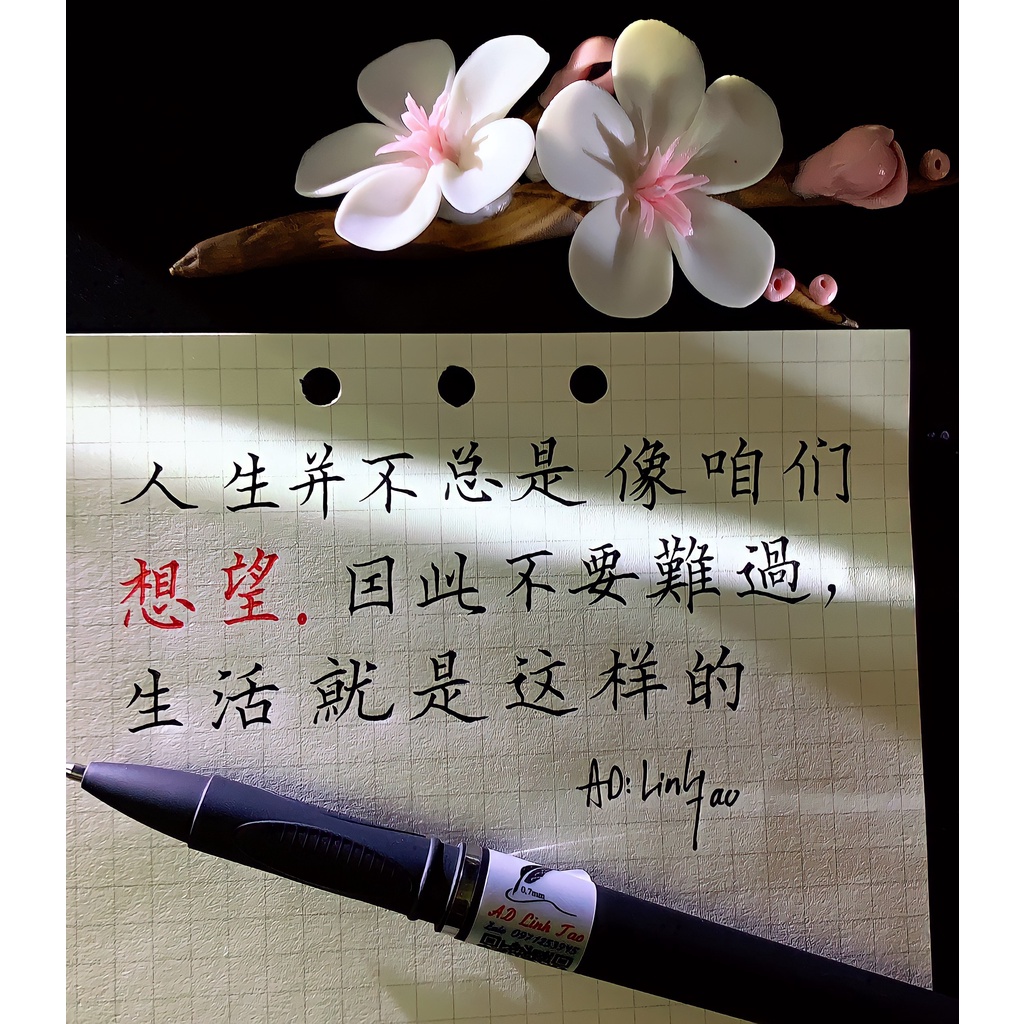 人生并不总是像咱们
想望.因此不要難過,
生活就是这样的
AD: Linh Tao
0.7mm
AD Linh Tao